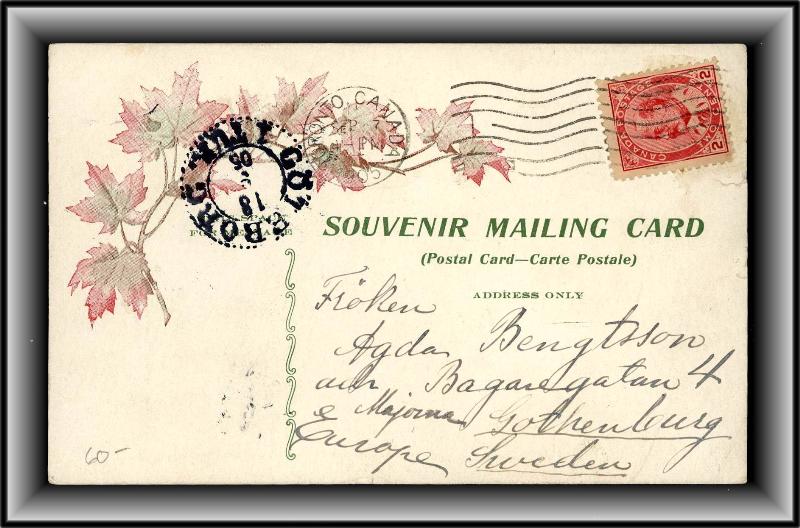 TORONTO, CANADA
SEP 7
PM
05
CANADA POSTAGE
2
2
GÖTEBORG 1 TUR
18
9
05
SOUVENIR MAILING CARD
(Postal Card—Carte Postale)
ADDRESS ONLY
Fröken
Agda Bengtsson
Bagaregatan 4
Majorna Gothenburg
Europe Sweden
60-